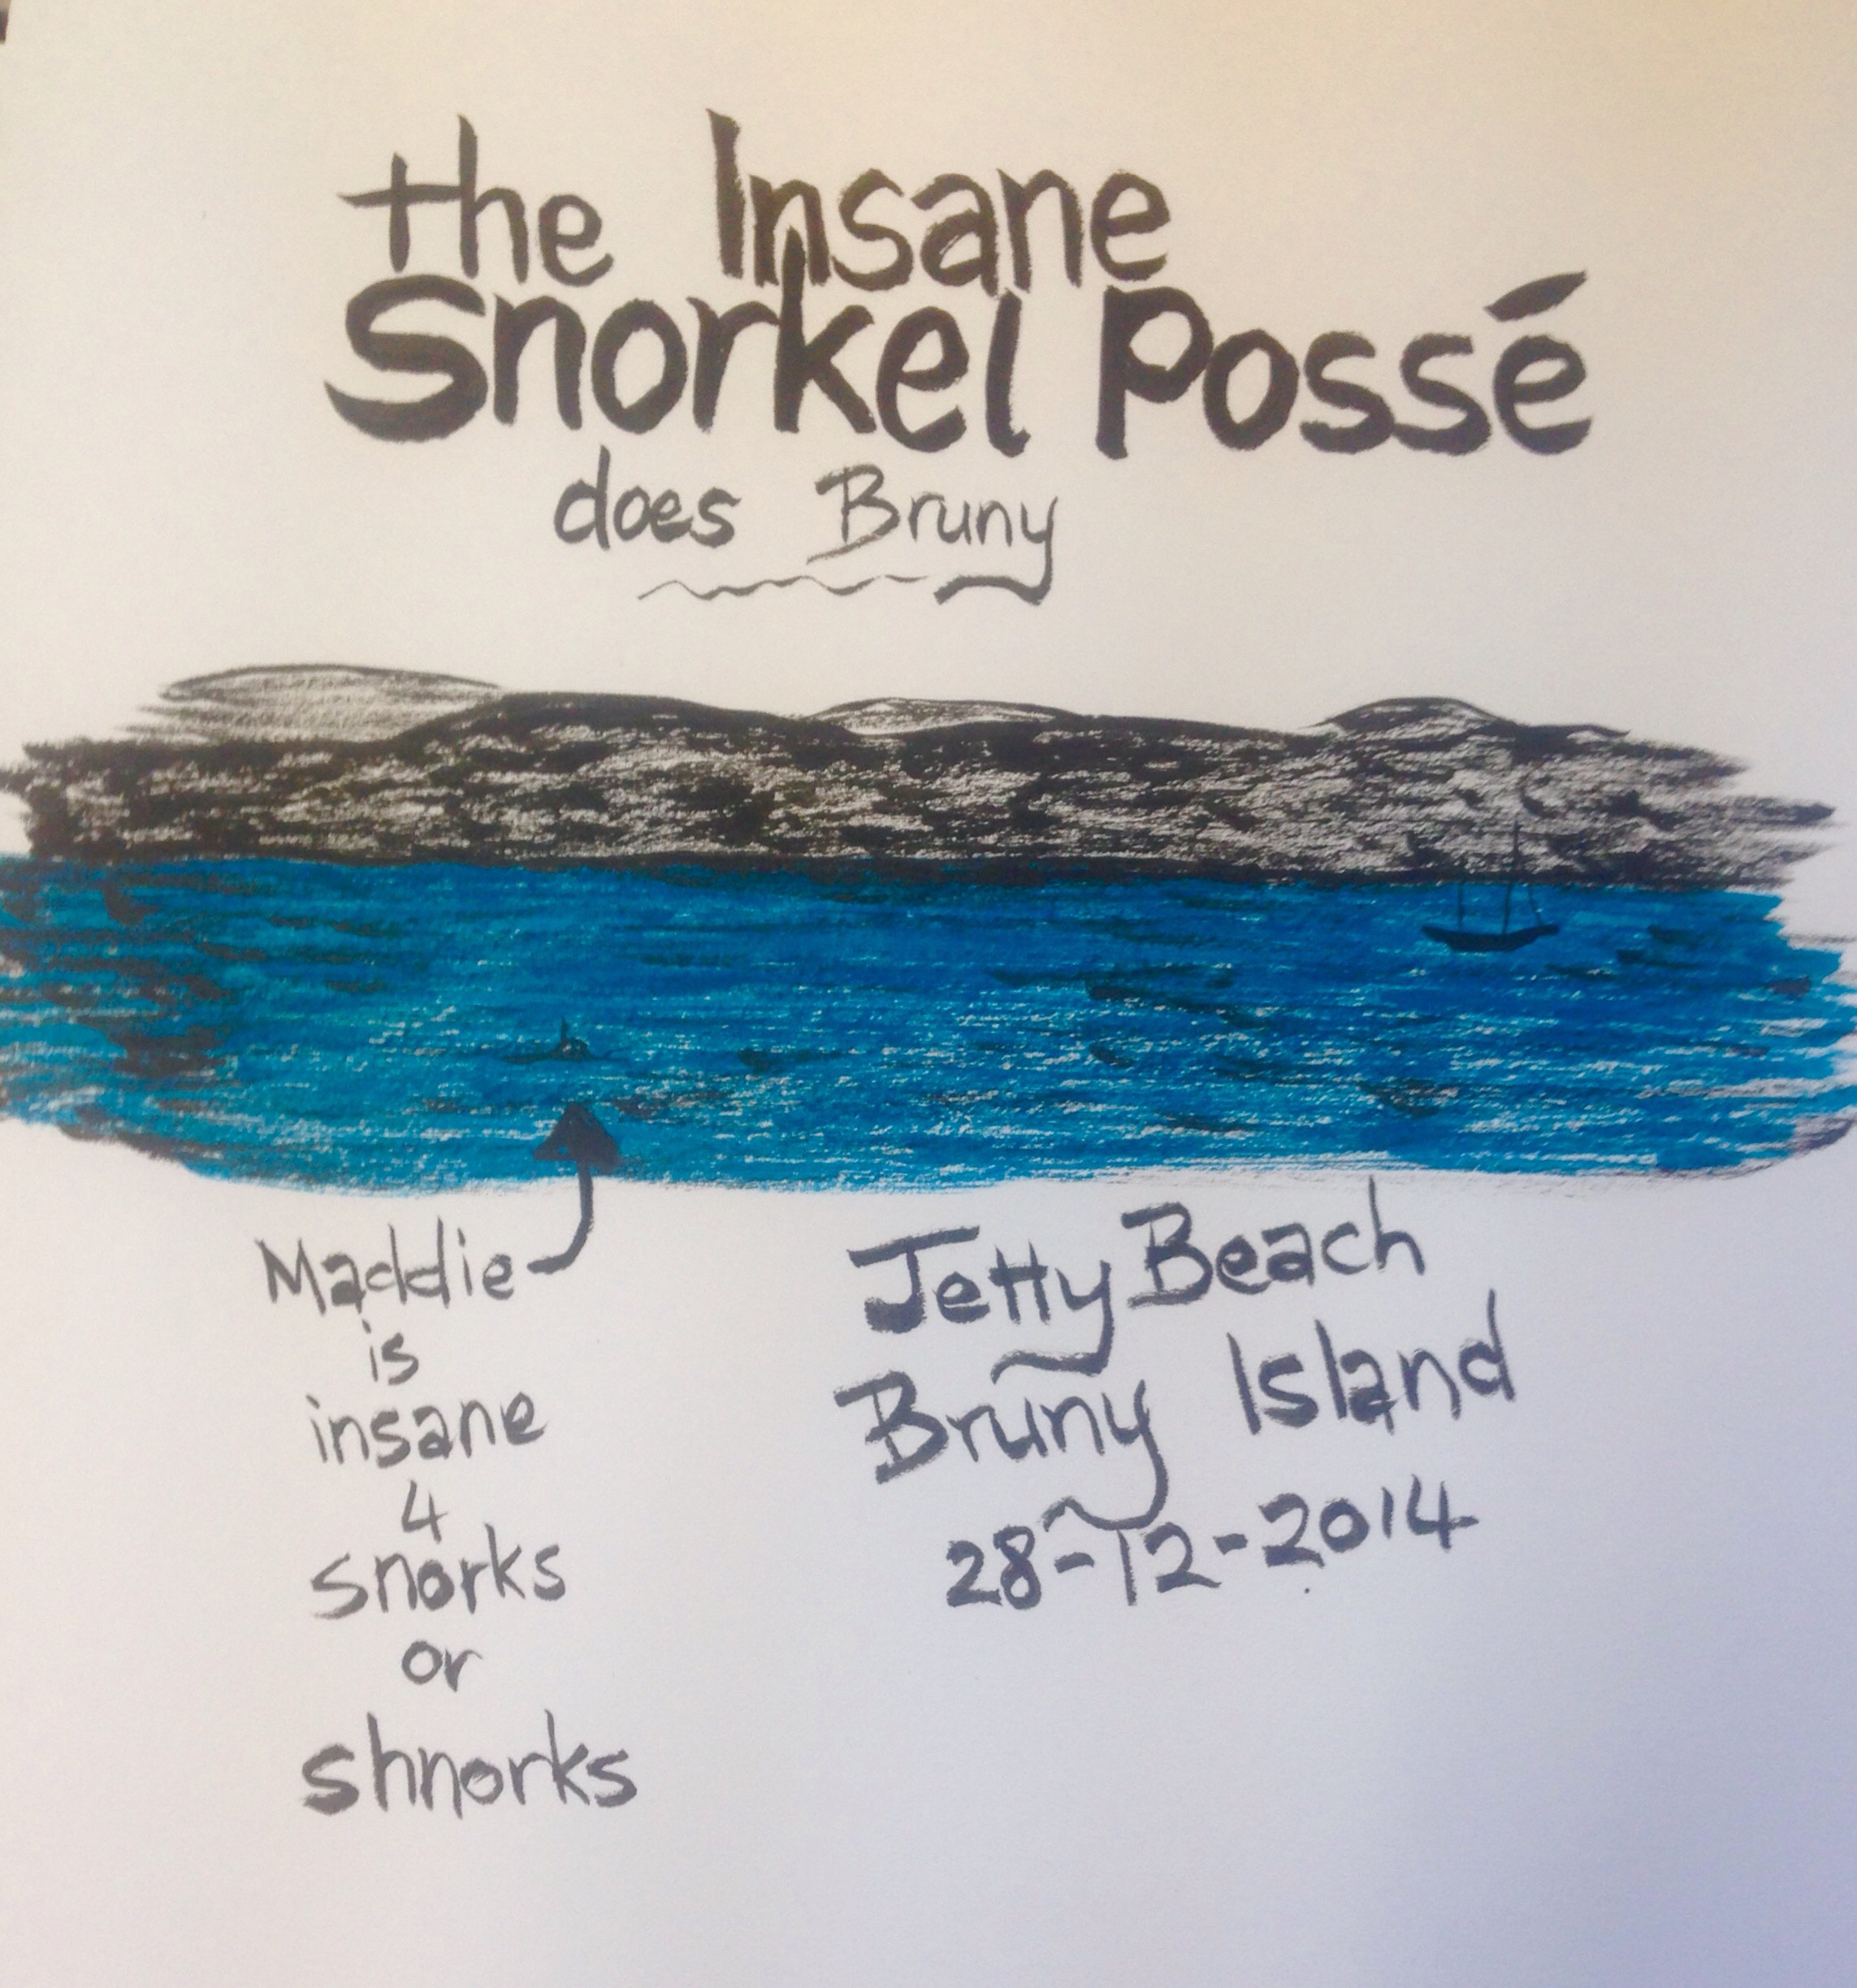 the Insane
Snorkel Possé
does Bruny
Maddie
is
insane
4
snorks
or
shnorks
Jetty Beach
Bruny Island
28-12-2014